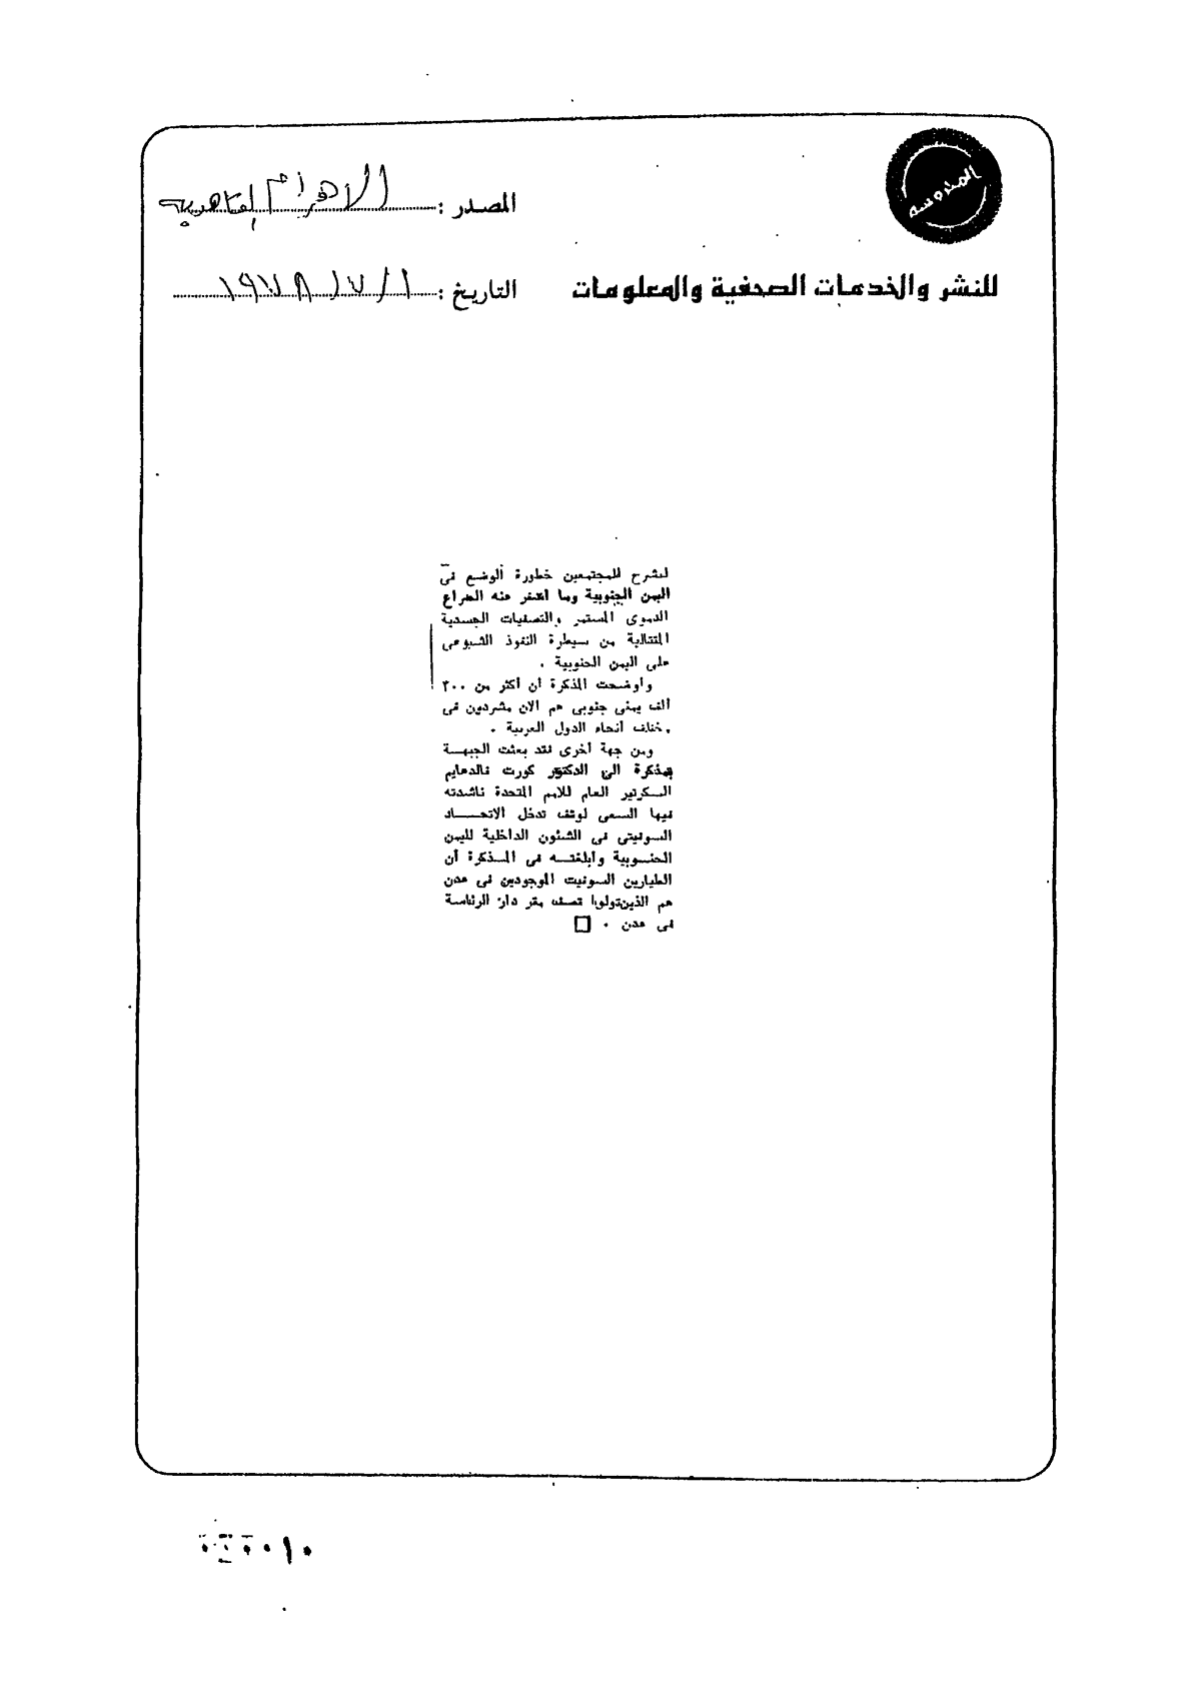 المحروسة
المصدر : الاهرام القاهرية
للنشر والخدمات الصحفية والمعلومات
التاريخ : ١ / ٧ / ١٩٧٨
لشرح للمجتمعين خطورة الوضع فى
اليمن الجنوبية وما اسفر عنه الصراع
الدموى المستمر والتصفيات الجسدية
المتتالية من سيطرة النفوذ الشيوعى
على اليمن الجنوبية .
وأوضحت المذكرة ان أكثر من ٣٠٠
ألف يمنى جنوبى هم الان مشردين فى
مختلف أنحاء الدول العربية .
ومن جهة أخرى فقد بعثت الجبهــة
بمذكرة الى الدكتور كورت فالدهايم
السكرتير العام للامم المتحدة ناشدته
فيها السعى لوقف تدخل الاتحـــاد
السوفيتى فى الشئون الداخلية لليمن
الجنــوبية وأبلغتــه فى المــذكرة أن
الطيارين السوفيت الموجودين فى عدن
هم الذين تولوا قصف مقر دار الرئاسة
فى عدن .